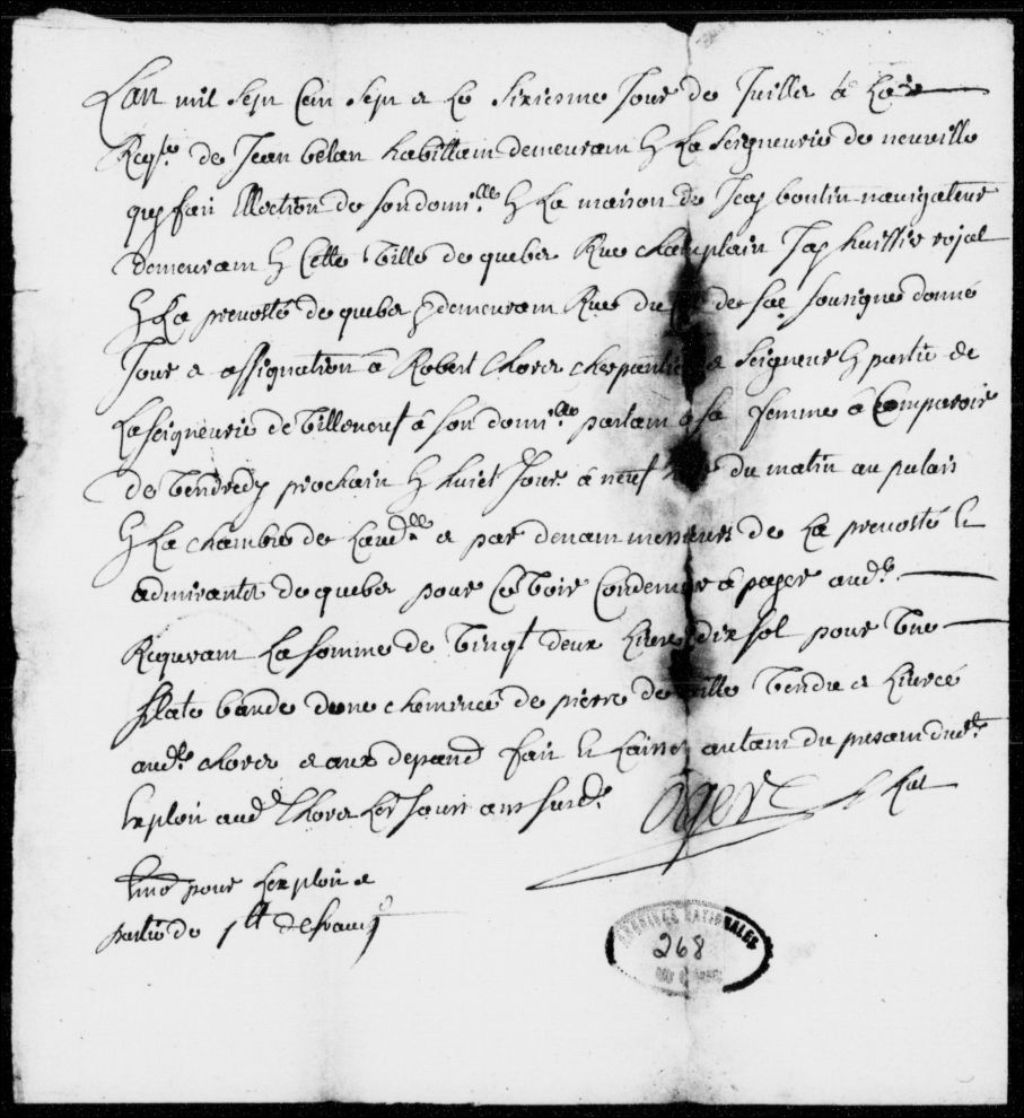 Lan mil sept cen sept & le sixiesme jour de juillet à la
Reqte de Jean belan habittam demeuram En La Seigneurie de neuville
qui fait Ellection de son domille En La maison de Jean boutin navigateur
demeuram En Cette ville de quebec Rue champlain Jay huissie rojal
En La prevosté de quebec y demeuram Rue du de sac sousigné donné
Jour & assignation à Robert Choret charpantie & Seigneur En partie de
La seigneurie de villeneuf à son domille parlam a sa femme à Comparoir
de vendredy prochain En huict Jour à neuf du matin au palais
En La chambre de Laudlle & par devam messieurs de La prevosté Et
admirauté de quebec pour Ce voir Condemner à payer audt
Requeram La somme de vingt deux Livre dix sol pour vne
plate bande dune cheminée de pierre de taille vendue & livrée
audt choret & aux depand fait Et Laissé autam du presam dudt
Exploit aud Choret Les Jour & an susdt
Oger
pour Lexploit &
partie de 1tt de franc
ARCHIVES NATIONALES
268